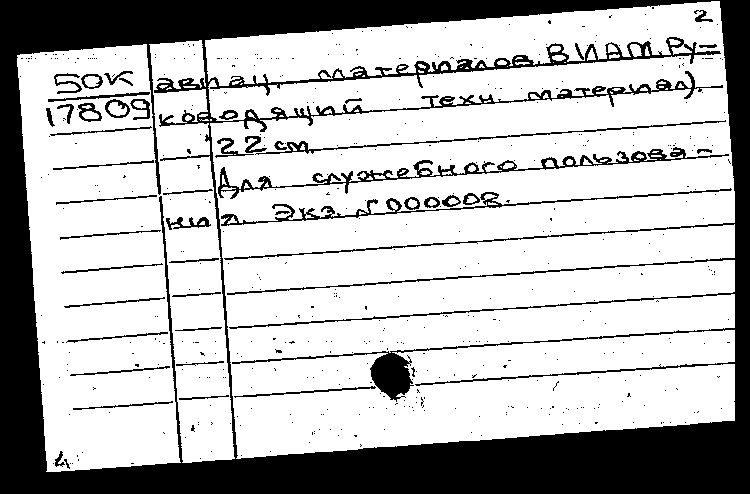 2
50К авиац. материалов. ВИАМ. Ру=
17809 ководящий техн. материал).
22 см.
Для служебного пользова-
ния. Экз. №000008.
4